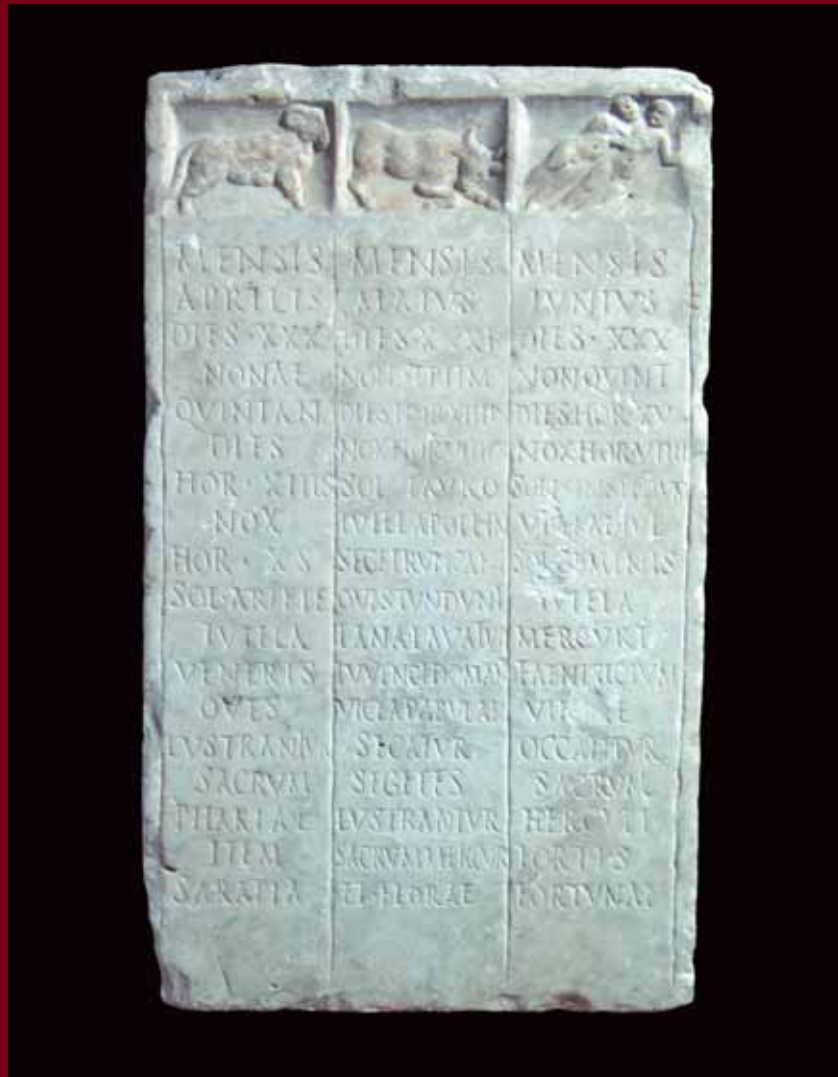 MENSIS
APRILIS
DIES · XXX
NONAE
QVINTAN
DIES
HOR · XIIIS
NOX
HOR · XS
SOL · ARIETE
TVTELA
VENERIS
OVES
LVSTRANTV
SACRVM
PHARIAE
ITEM
SARAPIA
MENSIS
MAIVS
DIES · XXXI
NON SEPTIM
NOX HOR VIIII
SOL TAVRO
TVTEL APOLLIN
SEGET RVNCAN
OVES TVNDVNT
LANA LAVATV
IVVENCI DOMAN
VICEA PABVLAR
SECATVR
SEGETES
LVSTRANTVR
SACRVM MERCVR
ET FLORAE
MENSIS
IVNIVS
DIES · XXX
NON QVINT
DIES HOR XV
NOX HOR VIIII
SOL GEMINIS
TVTELA
MERCVRI
FAENISICIVM
VINEAE
OCCANTVR
SACRVM
HERCVLI
FORTIS
FORTVNAE